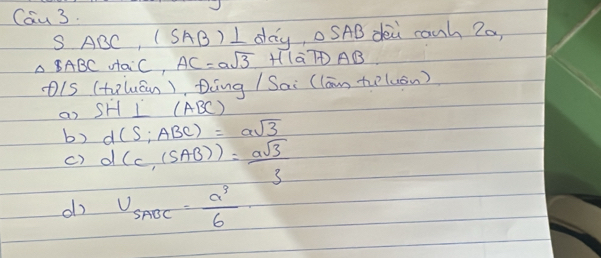 Câu 3.
S.ABC, (SAB) ⊥ đáy, Δ SAB đều cạnh 2a,
Δ ABC tại C, AC = a√3 H là TĐ AB
Đ/S (tự luận), Đúng / Sai (làm tự luận)
a) SH ⊥ (ABC)
b) d(S; ABC) = a√3
c) d(C, (SAB)) = a√3/3
d) V_SABC = a³/6